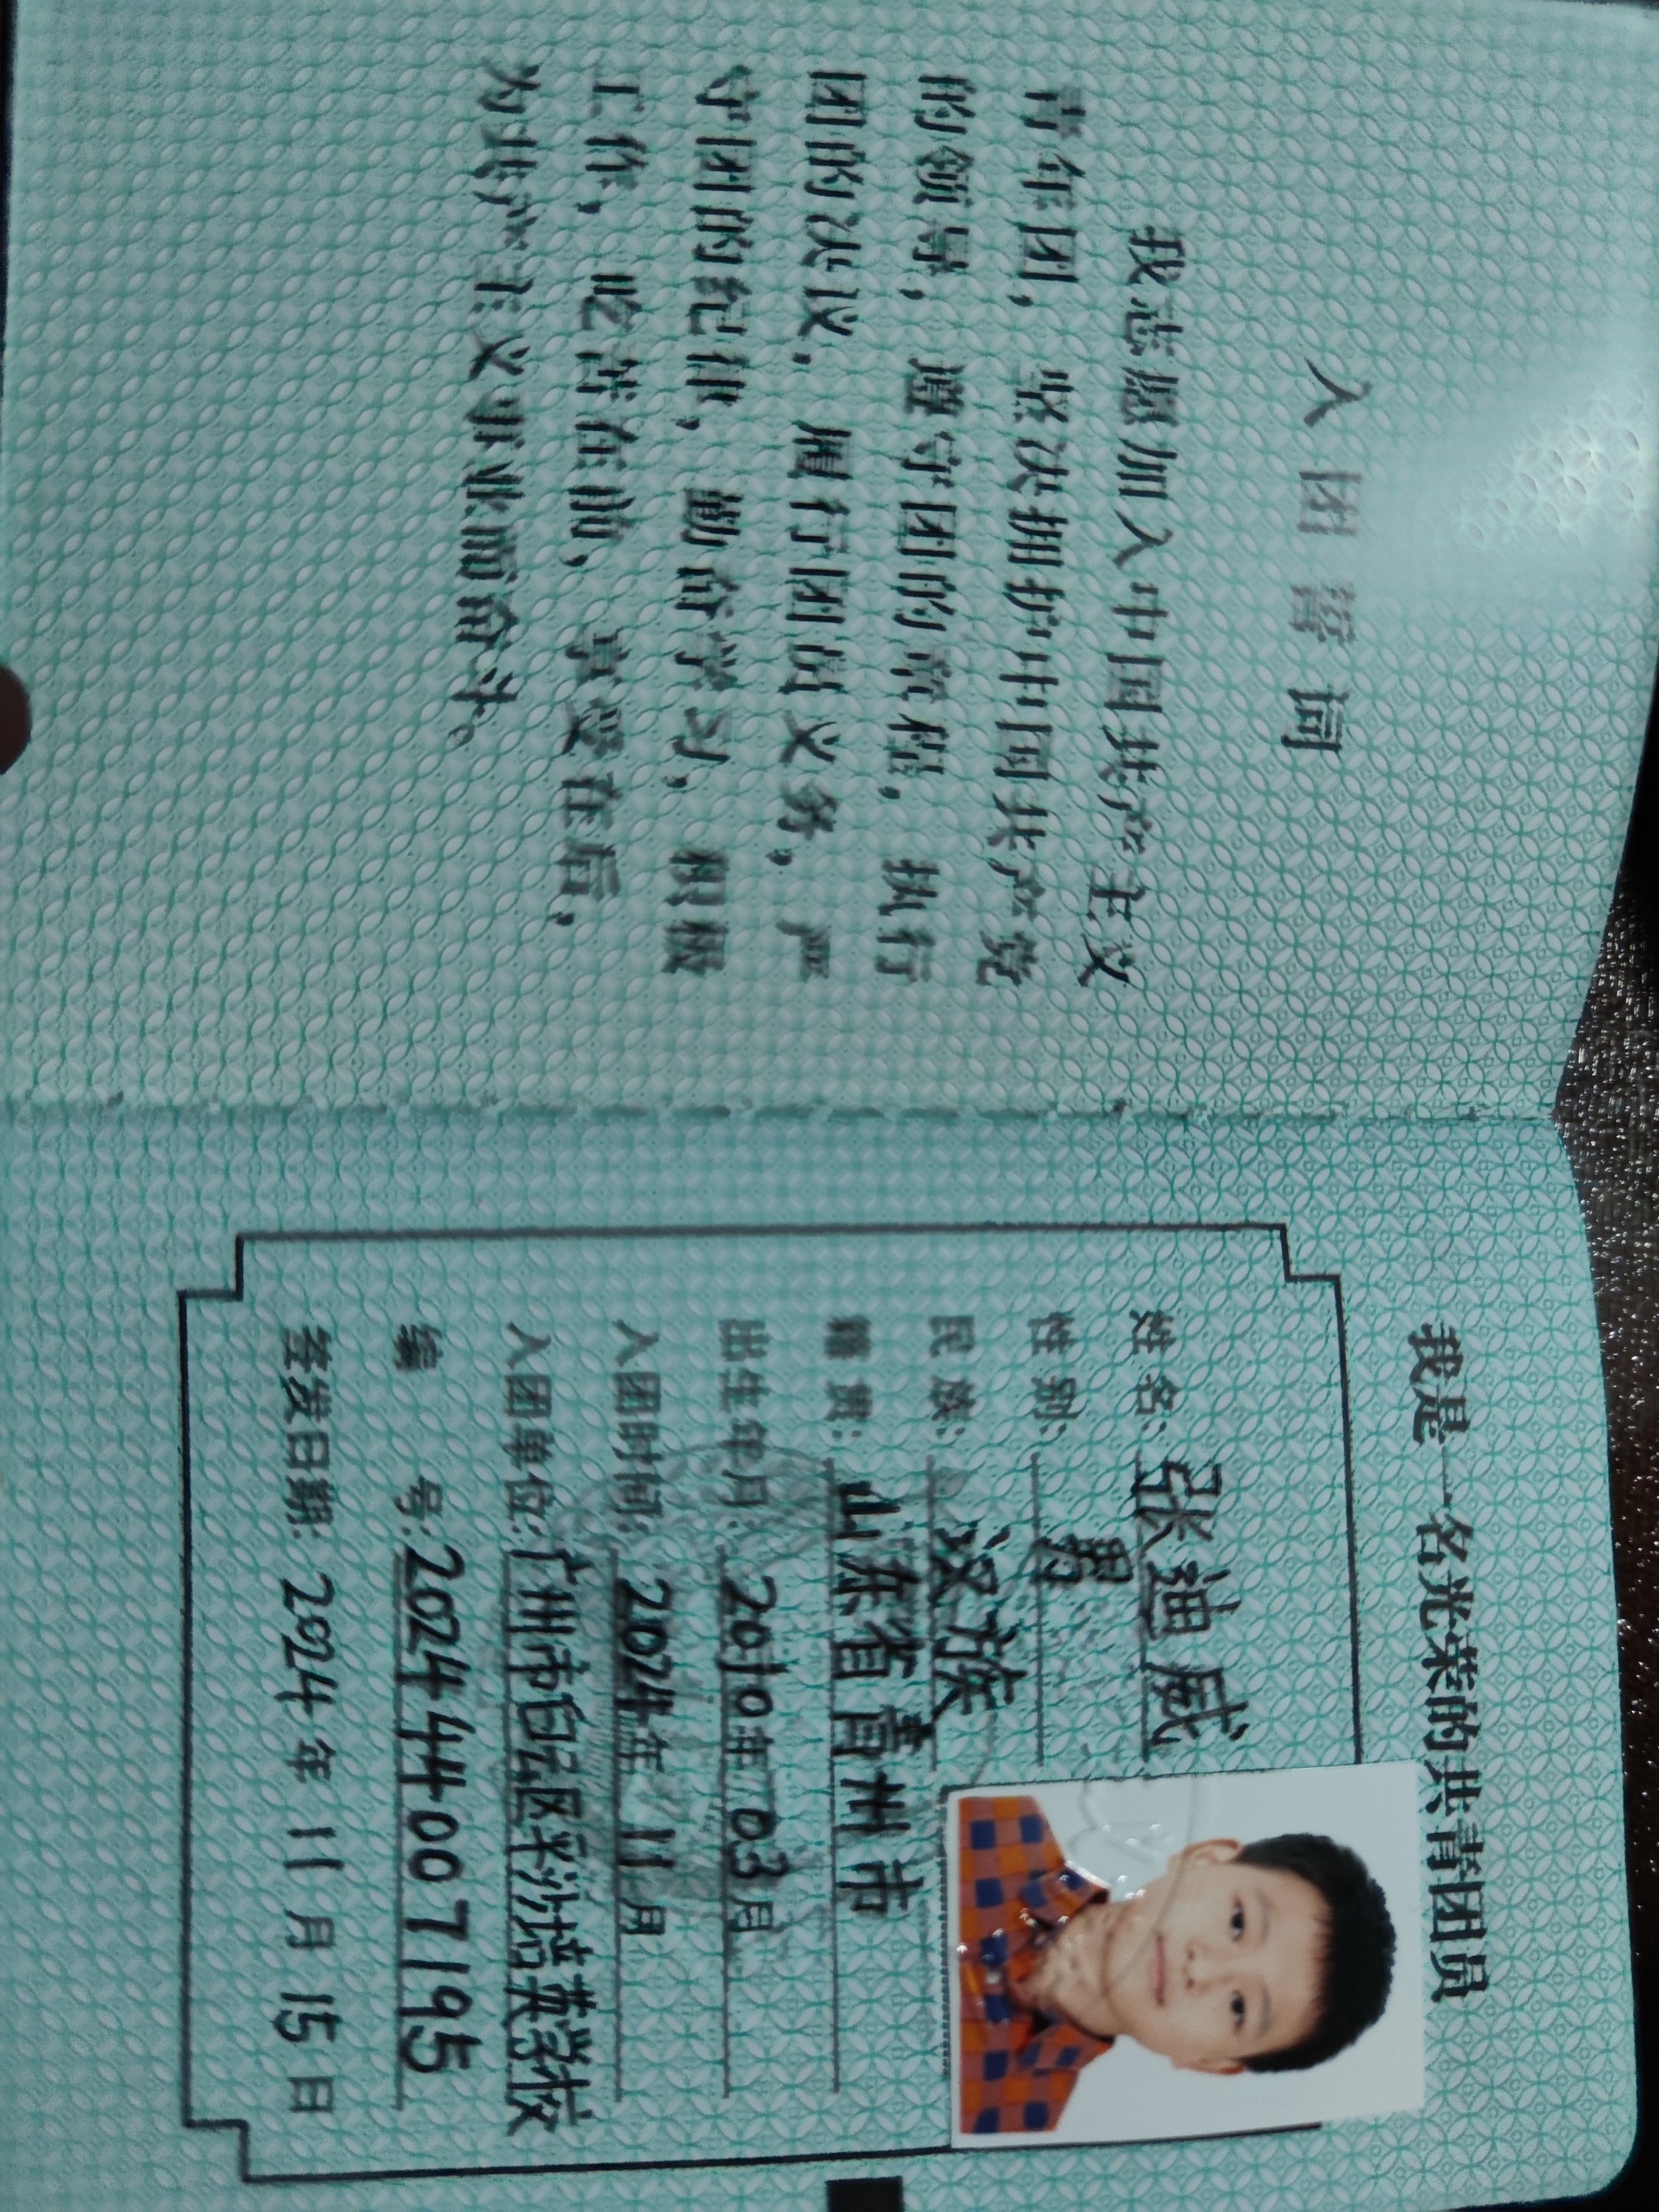 入团誓词
我志愿加入中国共产主义
青年团，坚决拥护中国共产党
的领导，遵守团的章程，执行
团的决议，履行团员义务，严
守团的纪律，勤奋学习，积极
工作，吃苦在前，享受在后，
为共产主义事业而奋斗。
我是一名光荣的共青团员
姓名：张迪威
性别：男
民族：汉族
籍贯：山东省青州市
出生年月：2010年03月
入团时间：2024年11月
入团单位：广州市白云区平沙培英学校
编号：202444007195
签发日期：2024年11月15日